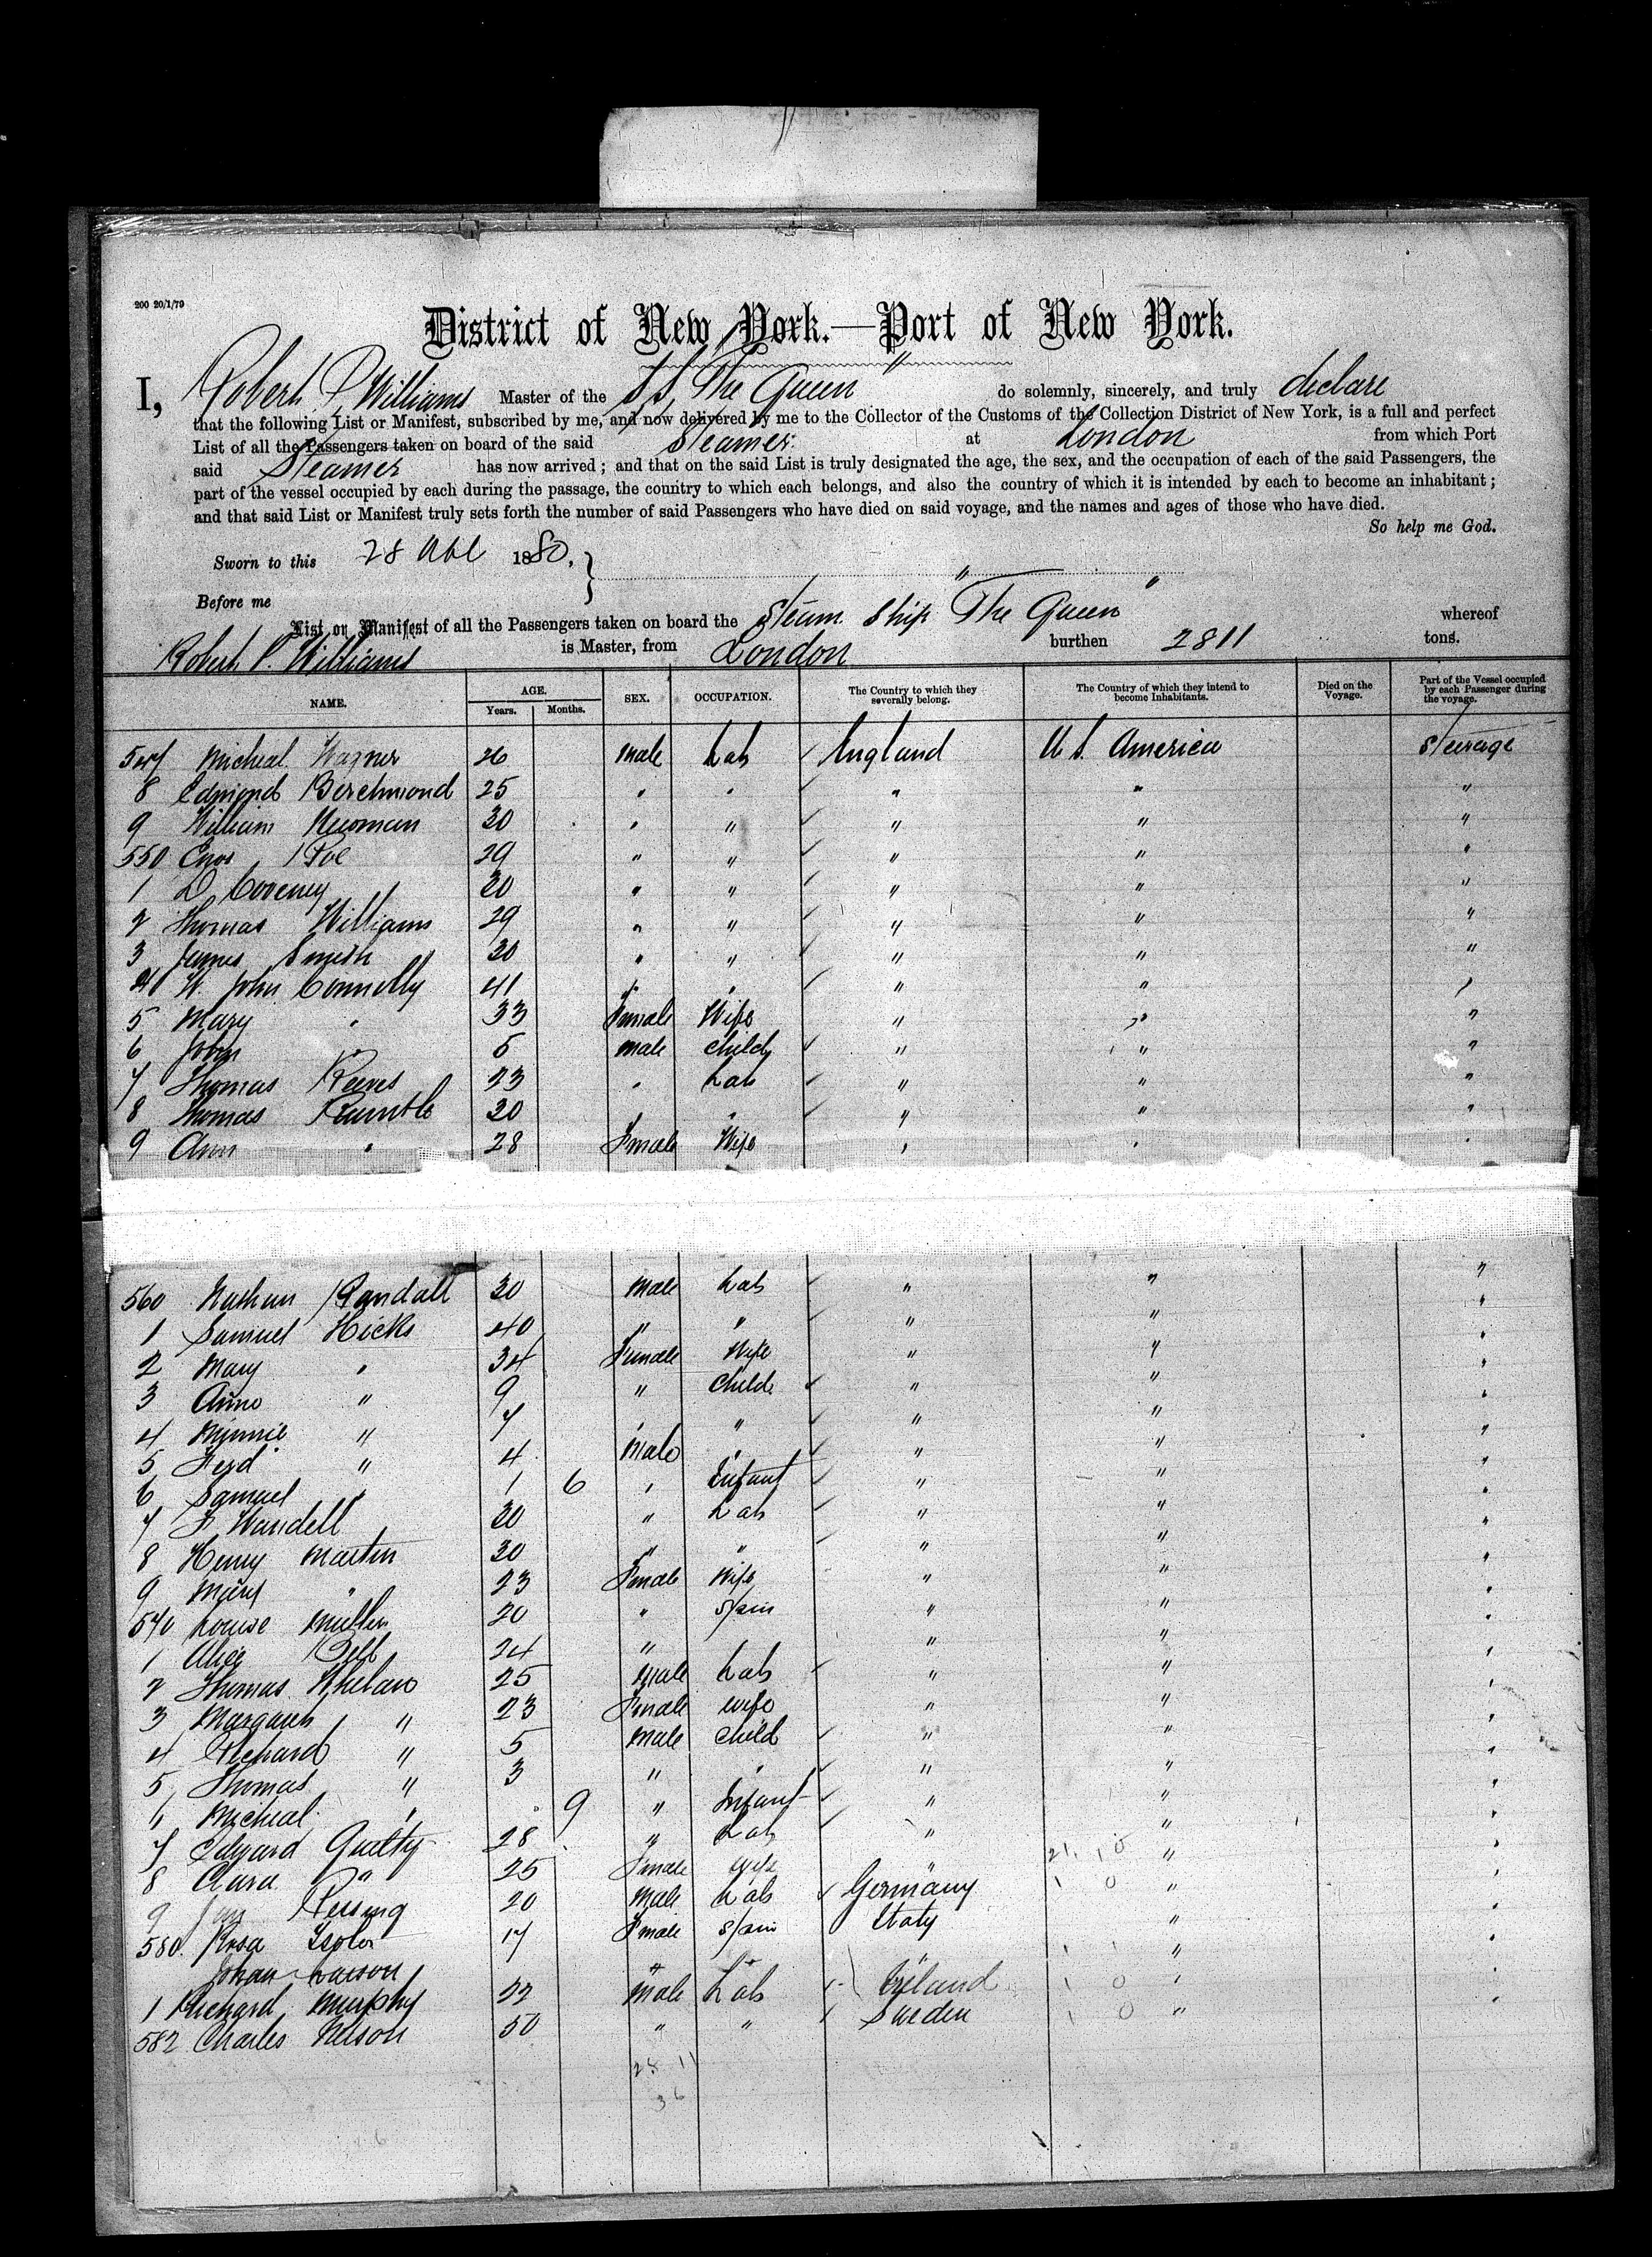 200 20/1/79
District of New York.—Port of New York.
I, Robert P Williams Master of the S.S. The Queen do solemnly, sincerely, and truly declare
that the following List or Manifest, subscribed by me, and now delivered by me to the Collector of the Customs of the Collection District of New York, is a full and perfect
List of all the Passengers taken on board of the said Steamer at London from which Port
said Steamer has now arrived; and that on the said List is truly designated the age, the sex, and the occupation of each of the said Passengers, the
part of the vessel occupied by each during the passage, the country to which each belongs, and also the country of which it is intended by each to become an inhabitant;
and that said List or Manifest truly sets forth the number of said Passengers who have died on said voyage, and the names and ages of those who have died.
So help me God.
Sworn to this 28 1880.
Before me
List or Manifest of all the Passengers taken on board the Steam Ship The Queen whereof
Robert P. Williams is Master, from London burthen 2811 tons.
NAME. AGE. Years. Months. SEX. OCCUPATION. The Country to which they severally belong. The Country of which they intend to become Inhabitants. Died on the Voyage. Part of the Vessel occupied by each Passenger during the voyage.
547 Micheal Wagner 26 Male Lab England U S. America Steerage
8 Edmond Berchmond 25 " " " " "
9 William Newman 30 " " " " "
550 Enos Poe 29 " " " " "
1 D Coveney 20 " " " " "
2 Thomas Williams 29 " " " " "
3 James Smith 30 " " " " "
4 W. John Connolly 41 " " " " "
5 Mary " 33 Female Wife " " "
6 John " 5 Male Child " " "
7 Thomas Reeves 23 " Lab " " "
8 Thomas 30 " " " " "
9 Ann " 28 Female Wife " " "
560 Nathan Randall 30 Male Lab " " "
1 Samuel Hicks 40 " " " " "
2 Mary " 34 Female Wife " " "
3 " 9 " Child " " "
4 Minnie " 7 " " " " "
5 Ferd " 4 Male " " " "
6 Samuel " 1 6 " Infant " " "
7 F Wandell 20 " Lab " " "
8 Henry Martin 30 " " " " "
9 Mary " 23 Female Wife " " "
570 Louise Muller 20 " Spin " " "
1 Alice 24 " " " "
2 Thomas Whelan 25 Male Lab " " "
3 Margaret " 23 Female Wife " " "
4 Richard " 5 Male Child " " "
5 Thomas " 3 " " " " "
6 Micheal " 9 " Infant " " "
7 Edward Quilty 28 " Lab " " "
8 Clara " 25 Female Wife " " "
9 20 Male Lab Germany " "
580 Rosa 17 Female Spin Italy " "
Johan Larson " " " "
1 Richard Murphy 22 Male Lab Ireland " "
582 Charles Nelson 50 " " Sweden " "
28 11
36